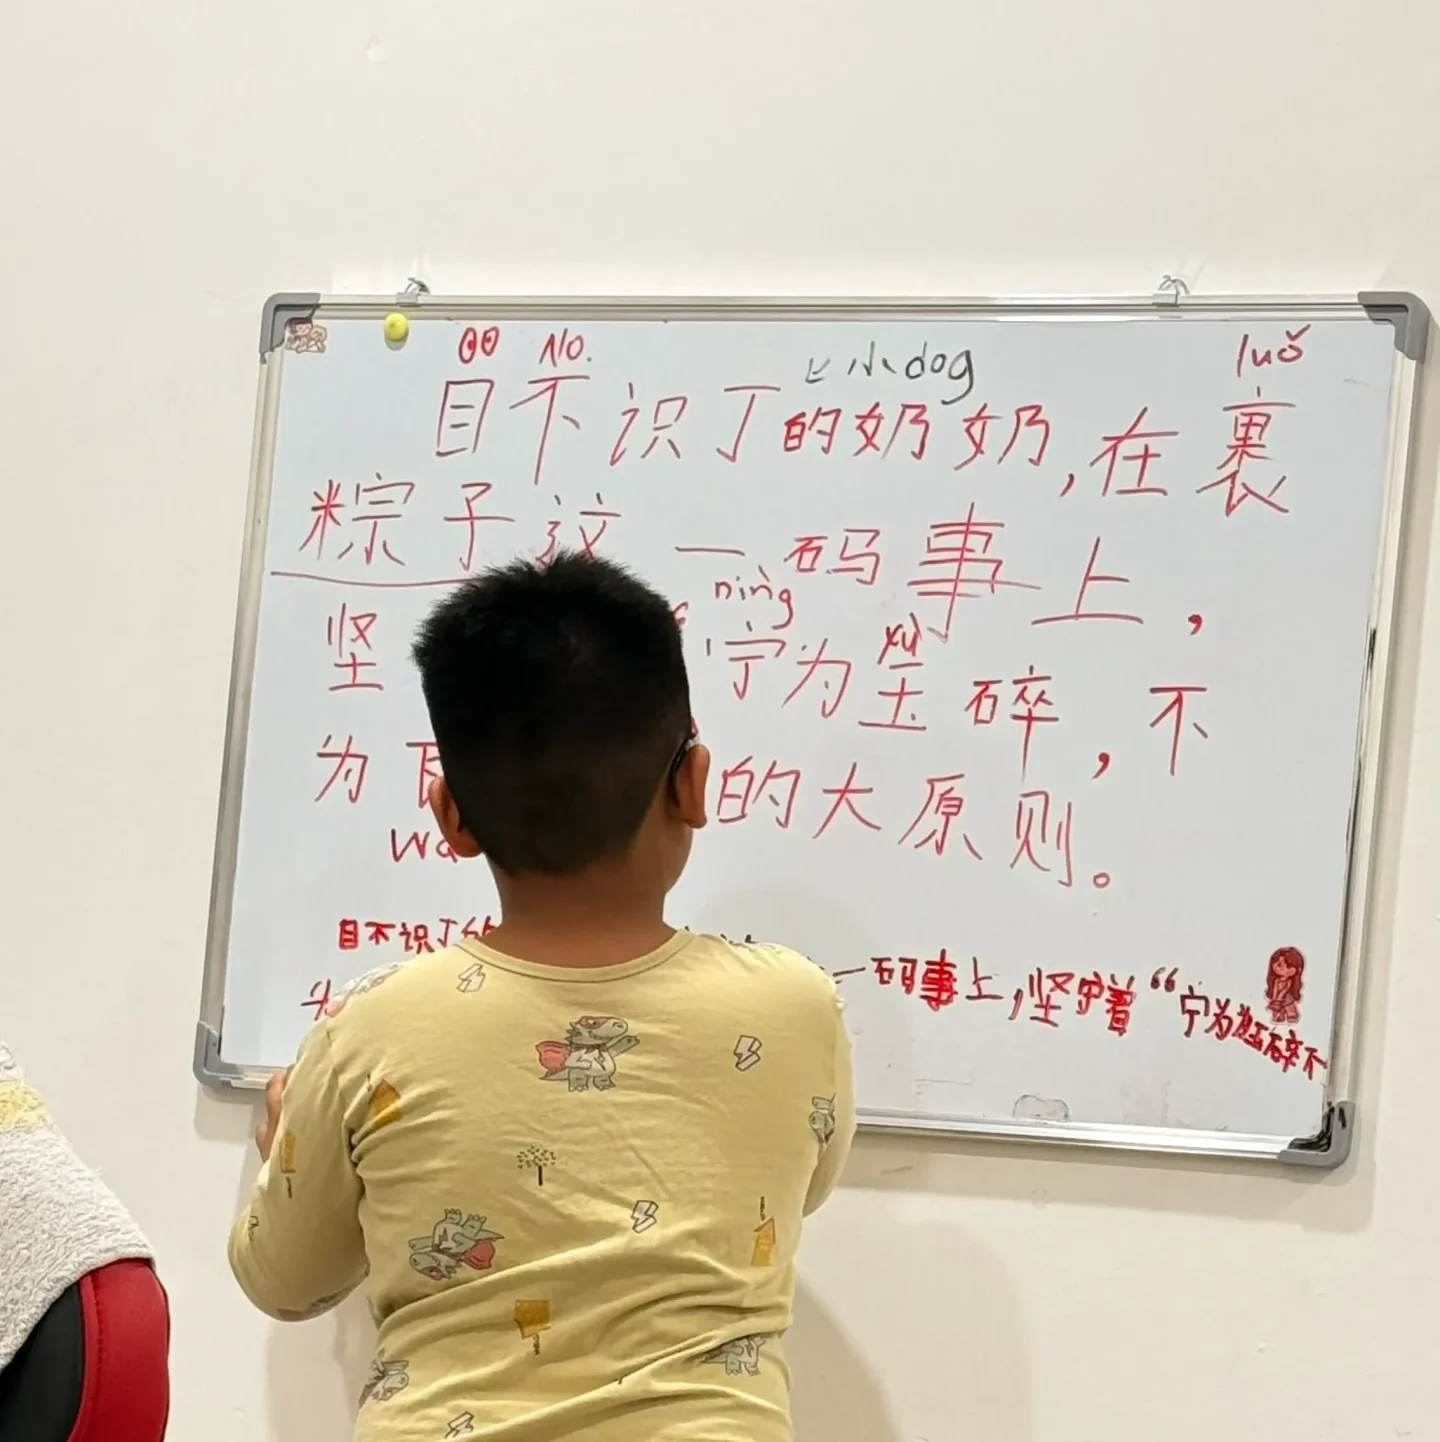 No. 小 dog luǒ
目不识丁的奶奶,在裹
粽子这一码事上,
nìng
坚 宁为玉碎,不
yù
为 的大原则。
wa
目不识丁的
一码事上,坚守着“宁为玉碎不